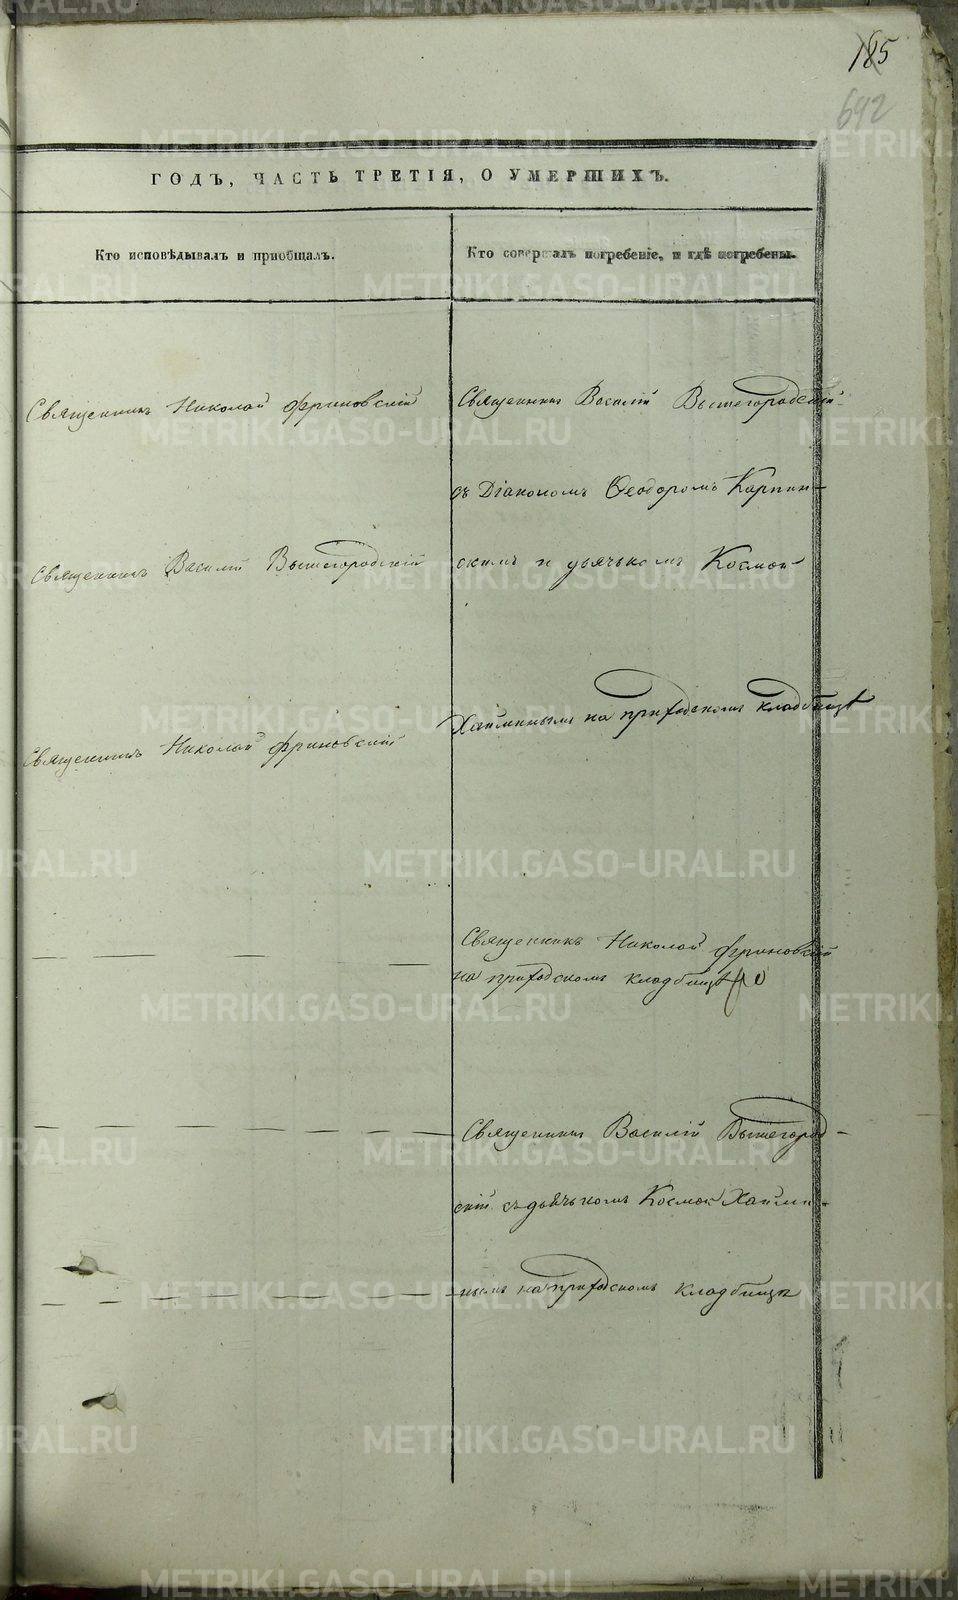 185
642
ГОДЪ, ЧАСТЬ ТРЕТІЯ, О УМЕРШИХЪ.
Кто исповѣдывалъ и приобщалъ.
Кто совершалъ погребеніе, и гдѣ погребены.
Священникъ Николай Фриновскій
Священникъ Василій Вышегородскій
Священникъ Николай Фриновскій
Священникъ Василій Вышегородскій
съ Діакономъ Ѳеодоромъ Карпин-
скимъ и дьячькомъ Космою
на приходскомъ кладбищѣ
Священникъ Николай Фриновскій
на приходскомъ кладбищѣ
Священникъ Василій Вышегород-
скій съ дьячькомъ Космою
нымъ на приходскомъ кладбищѣ
METRIKI.GASO-URAL.RU